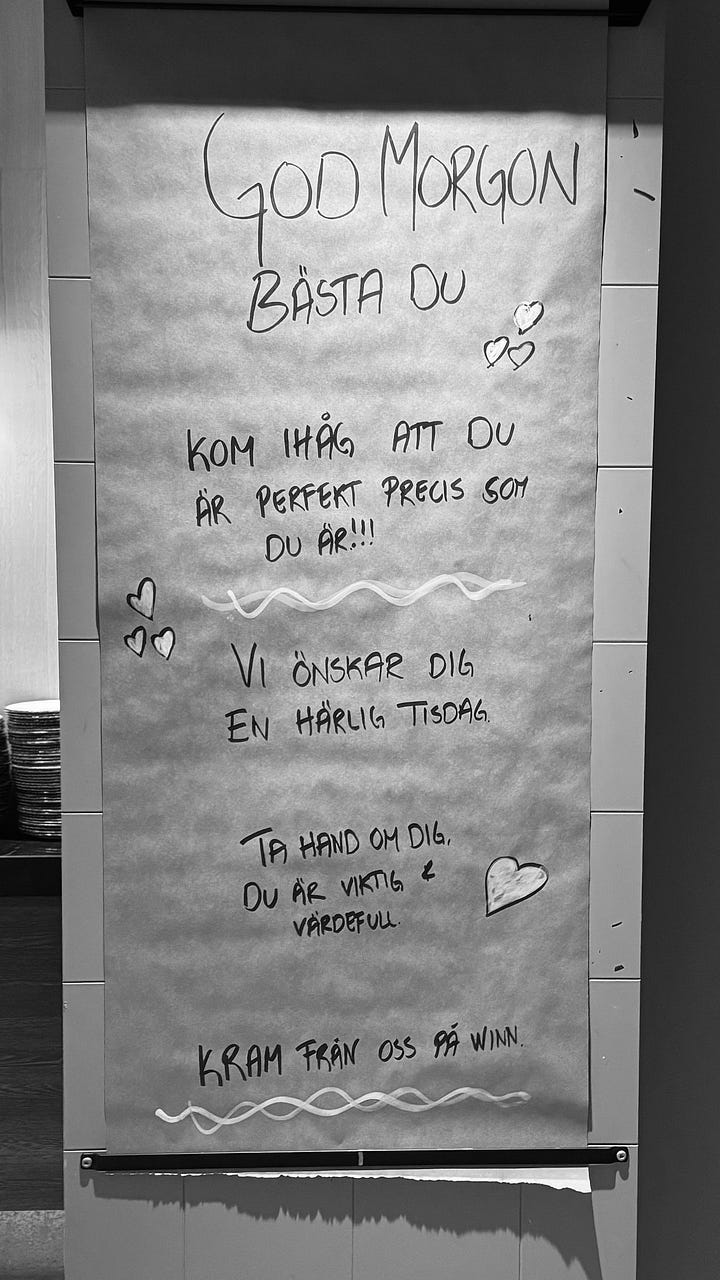 GOD MORGON
BÄSTA DU
KOM IHÅG ATT DU
ÄR PERFEKT PRECIS SOM
DU ÄR!!!
VI ÖNSKAR DIG
EN HÄRLIG TISDAG.
TA HAND OM DIG,
DU ÄR VIKTIG &
VÄRDEFULL.
KRAM FRÅN OSS PÅ WINN.